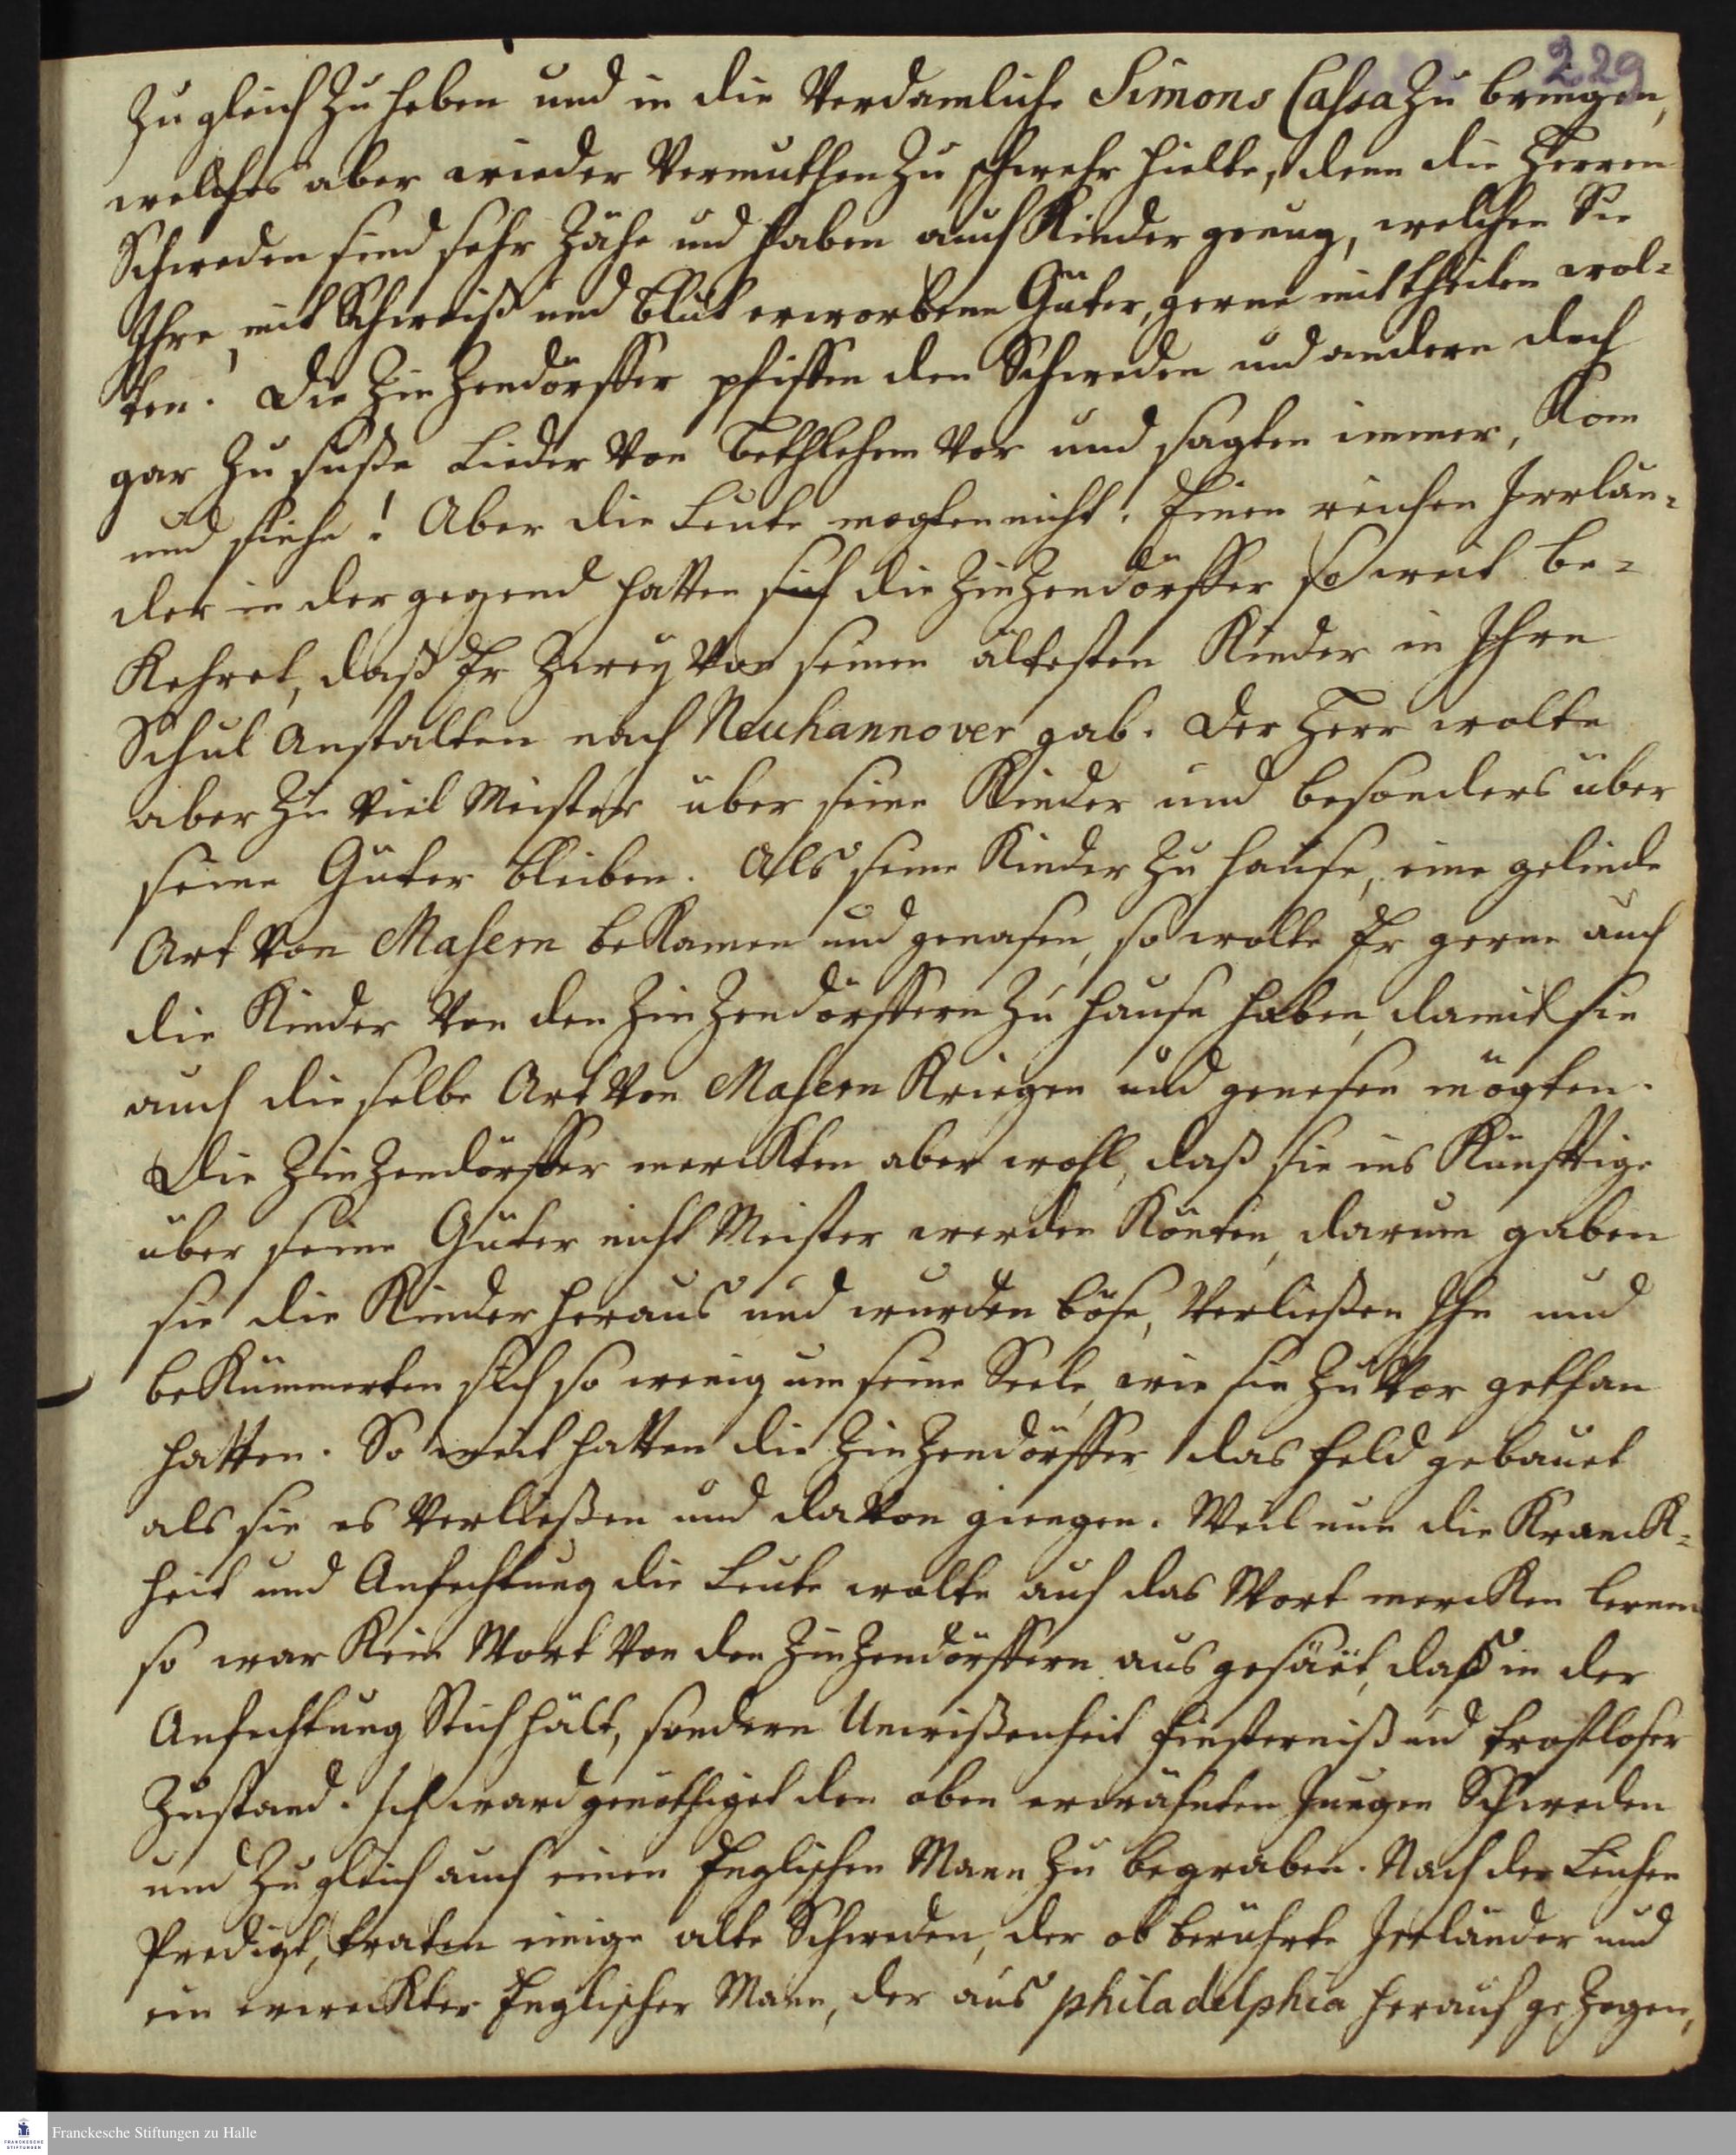 229
Zugleich zu heben und in die Verdamliche Simons Cassa zu bringen,
welches aber wieder Vermuthen zu schwehr hielte, denn die Herren
Schweden sind sehr zähe und haben auch Kinder genug, welchen Sie
Ihre, mit Schweiß und Blut erworbene Güter, gerne mittheilen wol=
ten. Die Zinzendörffer pfiffen den Schweden und andern doch
gar zu süße Lieder von Bethlehem vor und sagten immer, Kom
und siehe! Aber die Leute mogten nicht. Einen reichen Irrlän=
der in der gegend hatten sich die Zinzendörffer so weit be=
kehret, daß Er zwey von seinen ältesten Kinder in Ihre
Schul Anstalten nach Neuhannover gab. Der Herr wolte
aber zu viel Meister über seine Kinder und besonders über
seine Güter bleiben. Als seine Kinder zu Hause, eine gelinde
Art von Masern bekamen und genasen, so wolte Er gerne auch
die Kinder von den Zinzendörffern zu Hause haben, damit sie
auch dieselbe Art von Masern kriegen und genesen mögten.
Die Zinzendörffer merckten aber wohl, daß sie ins Künfftige
über seine Güter nicht Meister werden könten, darum gaben
sie die Kinder heraus und wurden böse, verließen Ihn und
bekümmerten sich so wenig um seine Seele, wie sie zuvor gethan
hatten. So weit hatten die Zinzendörffer das Feld gebauet
als sie es verließen und davon giengen. Weil nun die Kranck=
heit und Anfechtung die Leute wolte auf das Wort mercken lernen
so war kein Wort von den Zinzendörffern ausgesäet, daß in der
Anfechtung Stich hält, sondern Unwißenheit Finsterniß und trostloser
Zustand. Ich ward genöthiget den oben erwähnten Jungen Schweden
und zugleich auch einen Englischen Mann zu begraben. Nach der Leichen
Predigt, traten einige alte Schweden, der ob berührte Irrländer und
ein erweckter Englischer Mann, der aus philadelphia herauf gezogen,
Franckesche Stiftungen zu Halle